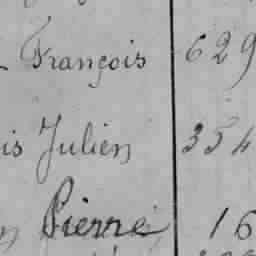 François 629
is Julien 354
n Pierre 16